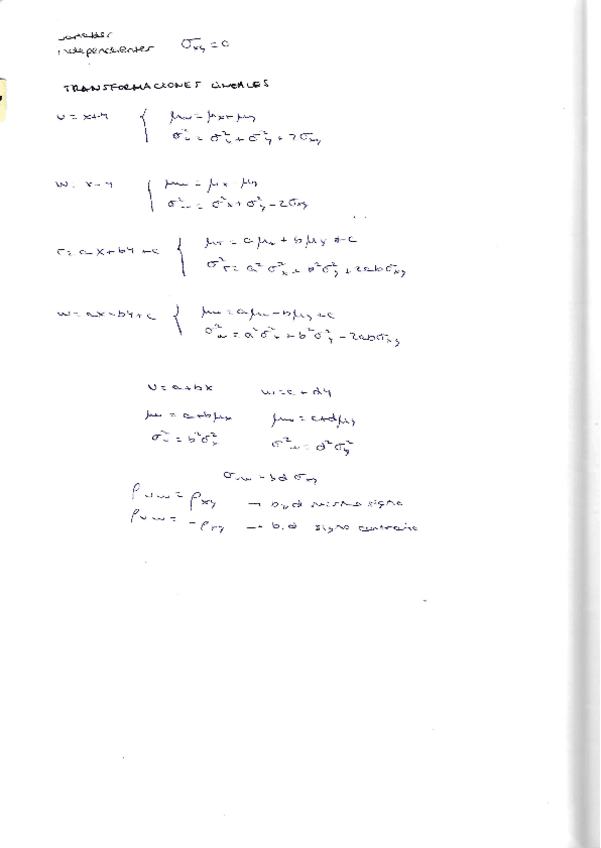 variables
independientes σxy = 0
TRANSFORMACIONES LINEALES
U = X+Y { μu = μx + μy
σ²u = σ²x + σ²y + 2σxy
W = X-Y { μw = μx - μy
σ²w = σ²x + σ²y - 2σxy
T = aX + bY + c { μT = aμx + bμy + c
σ²T = a²σ²x + b²σ²y + 2abσxy
W = aX - bY + c { μw = aμx - bμy + c
σ²w = a²σ²x + b²σ²y - 2abσxy
U = a + bX W = c + dY
μu = a + bμx μw = c + dμy
σ²u = b²σ²x σ²w = d²σ²y
σuw = bd σxy
ρuw = ρxy → b,d mismo signo
ρuw = -ρxy → b,d signo contrario